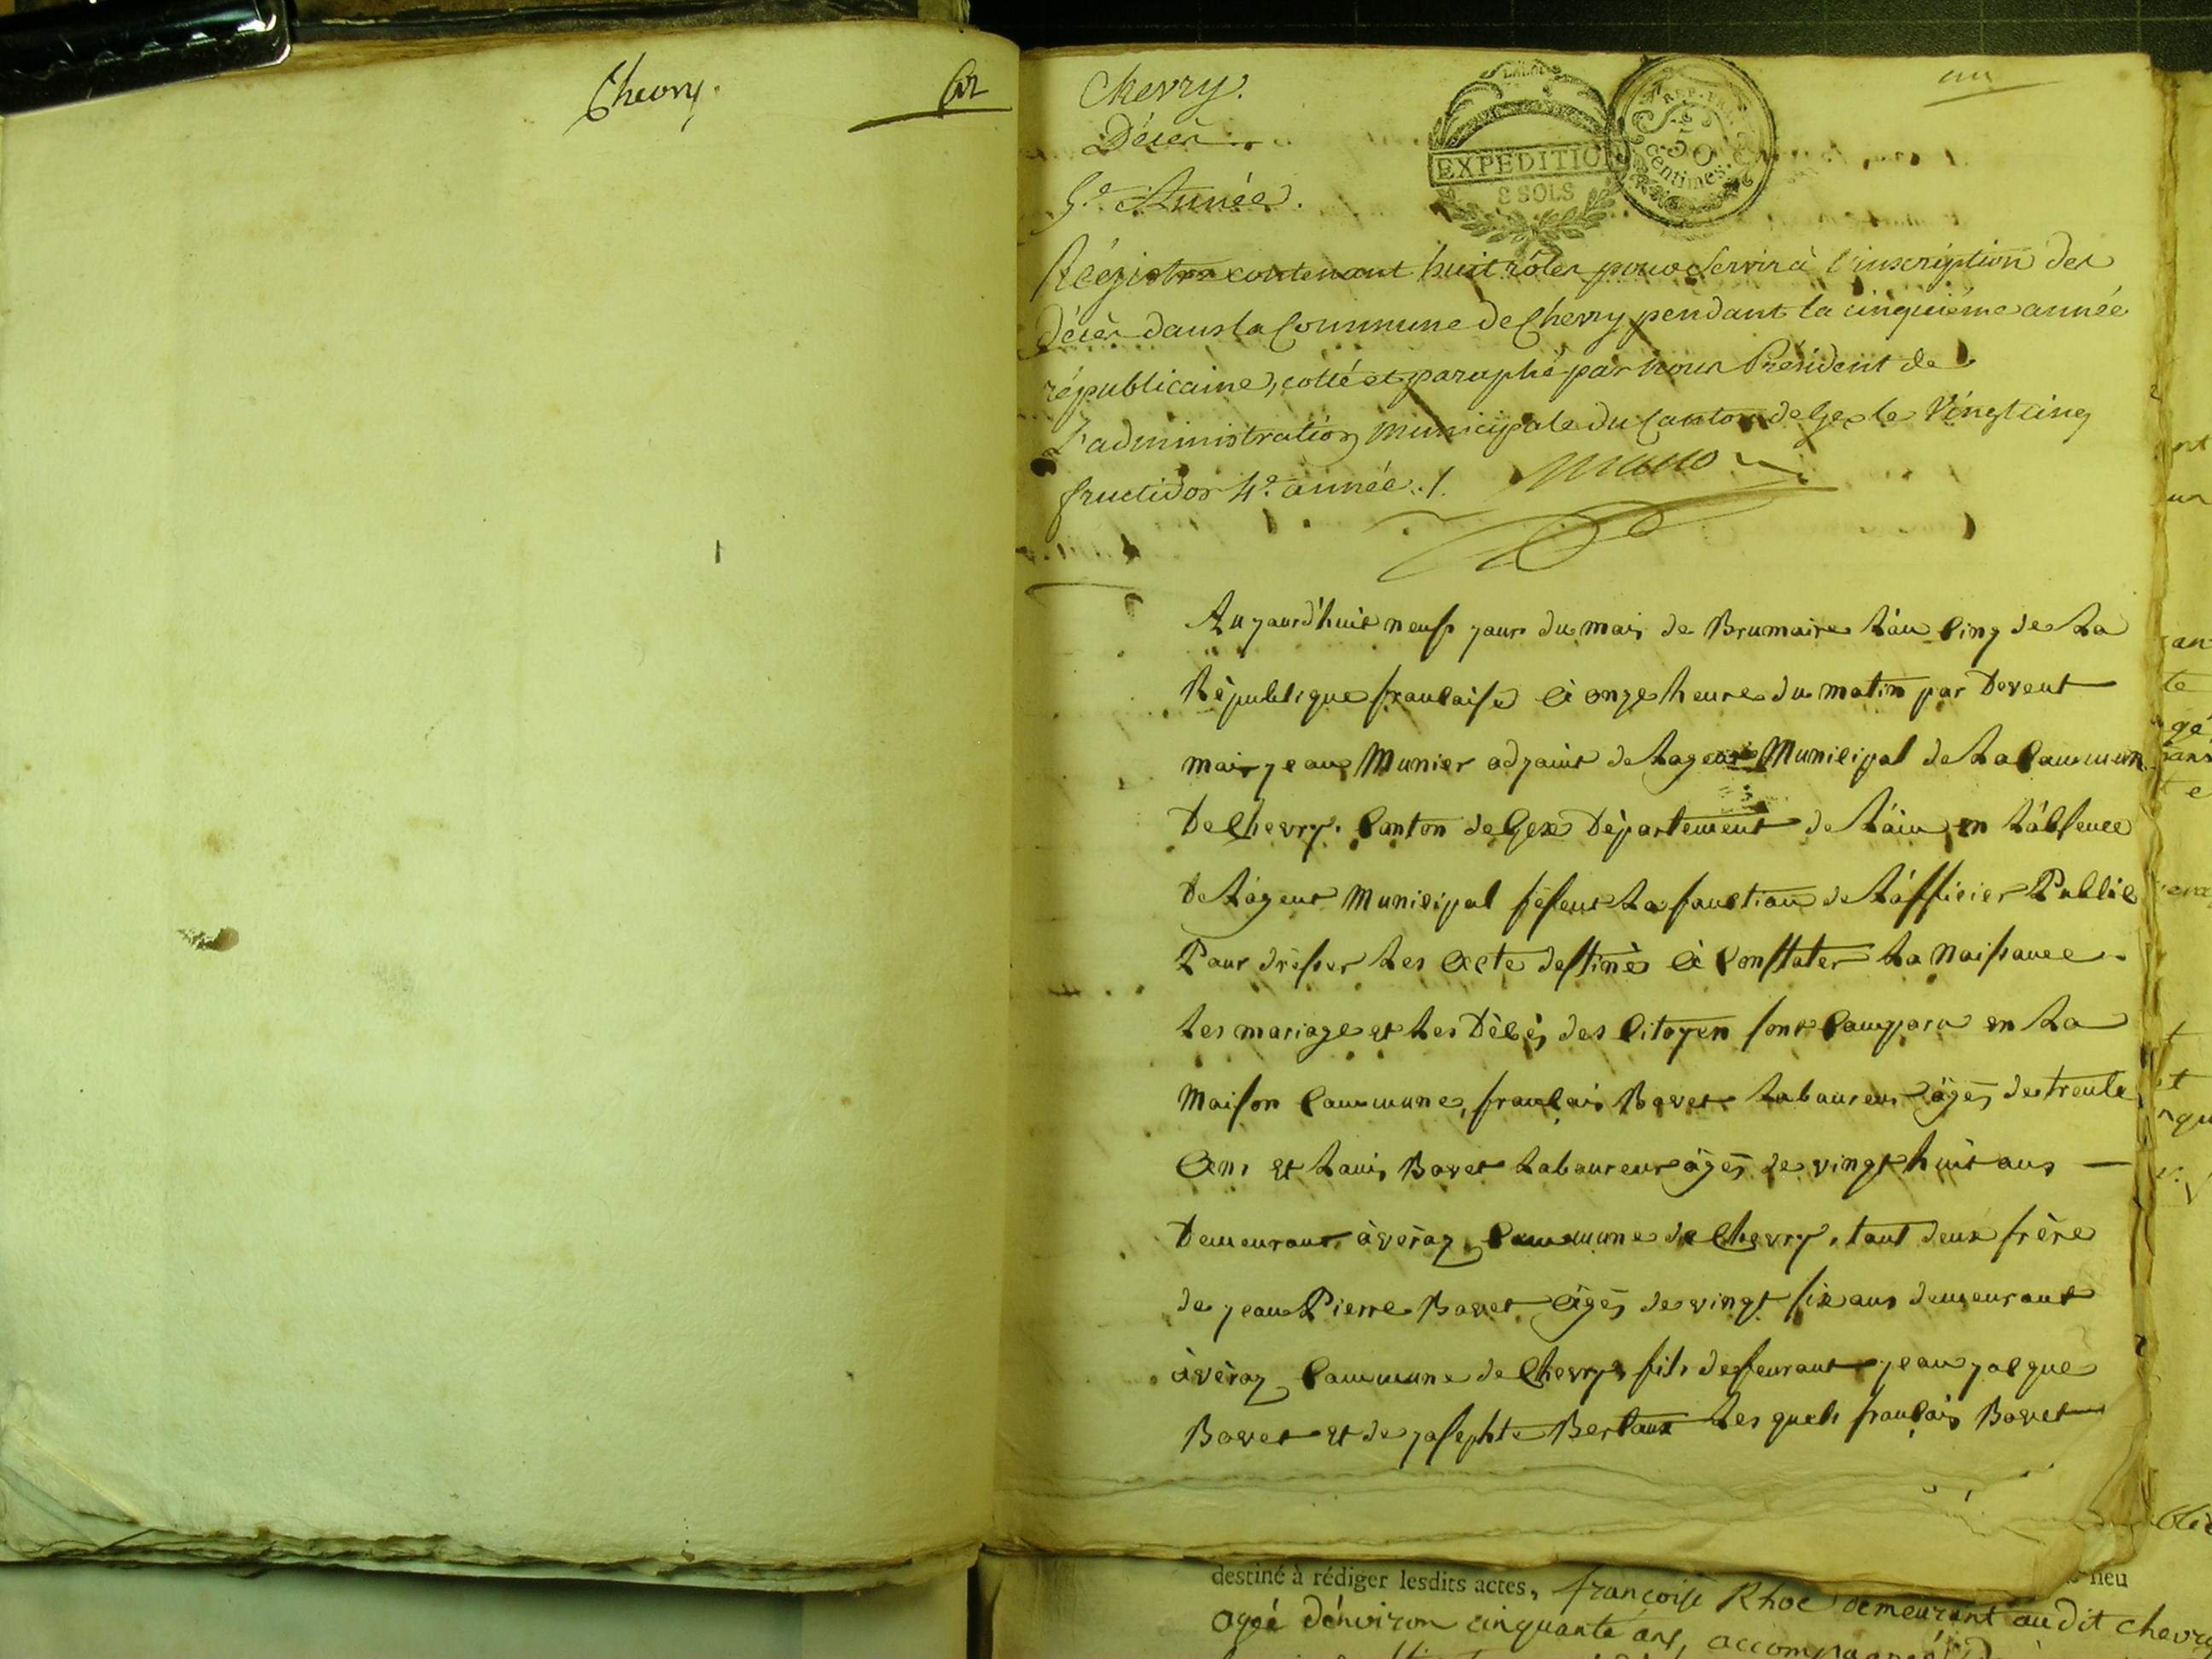 Chevry.
Chevry.
Décès
5e. Année.
EXPEDITIO
8 SOLS
REP. FRA.
50
centimes
un
Régistre contenant huit rôles pour servir à l'inscription des
décès dans la Commune de Chevry pendant la cinquième année
républicaine, cotté et paraphé par nous Président de
L'administration municipale du Canton de Gex le Vingt cinq
fructidor 4e. année ./.
Aujourd'huit neuf jour du mois de Brumaire L'an Cinq de La
République francaise à onze heure du matin par Devent
moi jean Munier adjoint de Lagent Municipal de La Commun
De Chevry. Canton de Gex Département de L'ain en L'absence
De L'agent Municipal fesent La fonction de L'officier Public
Pour drésser Les Acte destinè à Constater La Naissance
Les mariage et Les Dècès des Citoyen sont Comparu en La
Maison Commune, françois Bovet Laboureur àgés de trente
Ans et Louis Bovet Laboureur àgés de vingt huit ans
Demeurant à vèraz Commune de Chevry, tout deux frère
de jean Pierre Bovet àgés de vingt six ans demeurant
à vèraz Commune de Chevry fils de feurant jean jacque
Bovet et de josephte Bertoux Les quels françois Bovet
destiné à rédiger lesdits actes, françoise Rhoe demeurant au dit chevry
agée d'environ cinquante ans, accompagnée